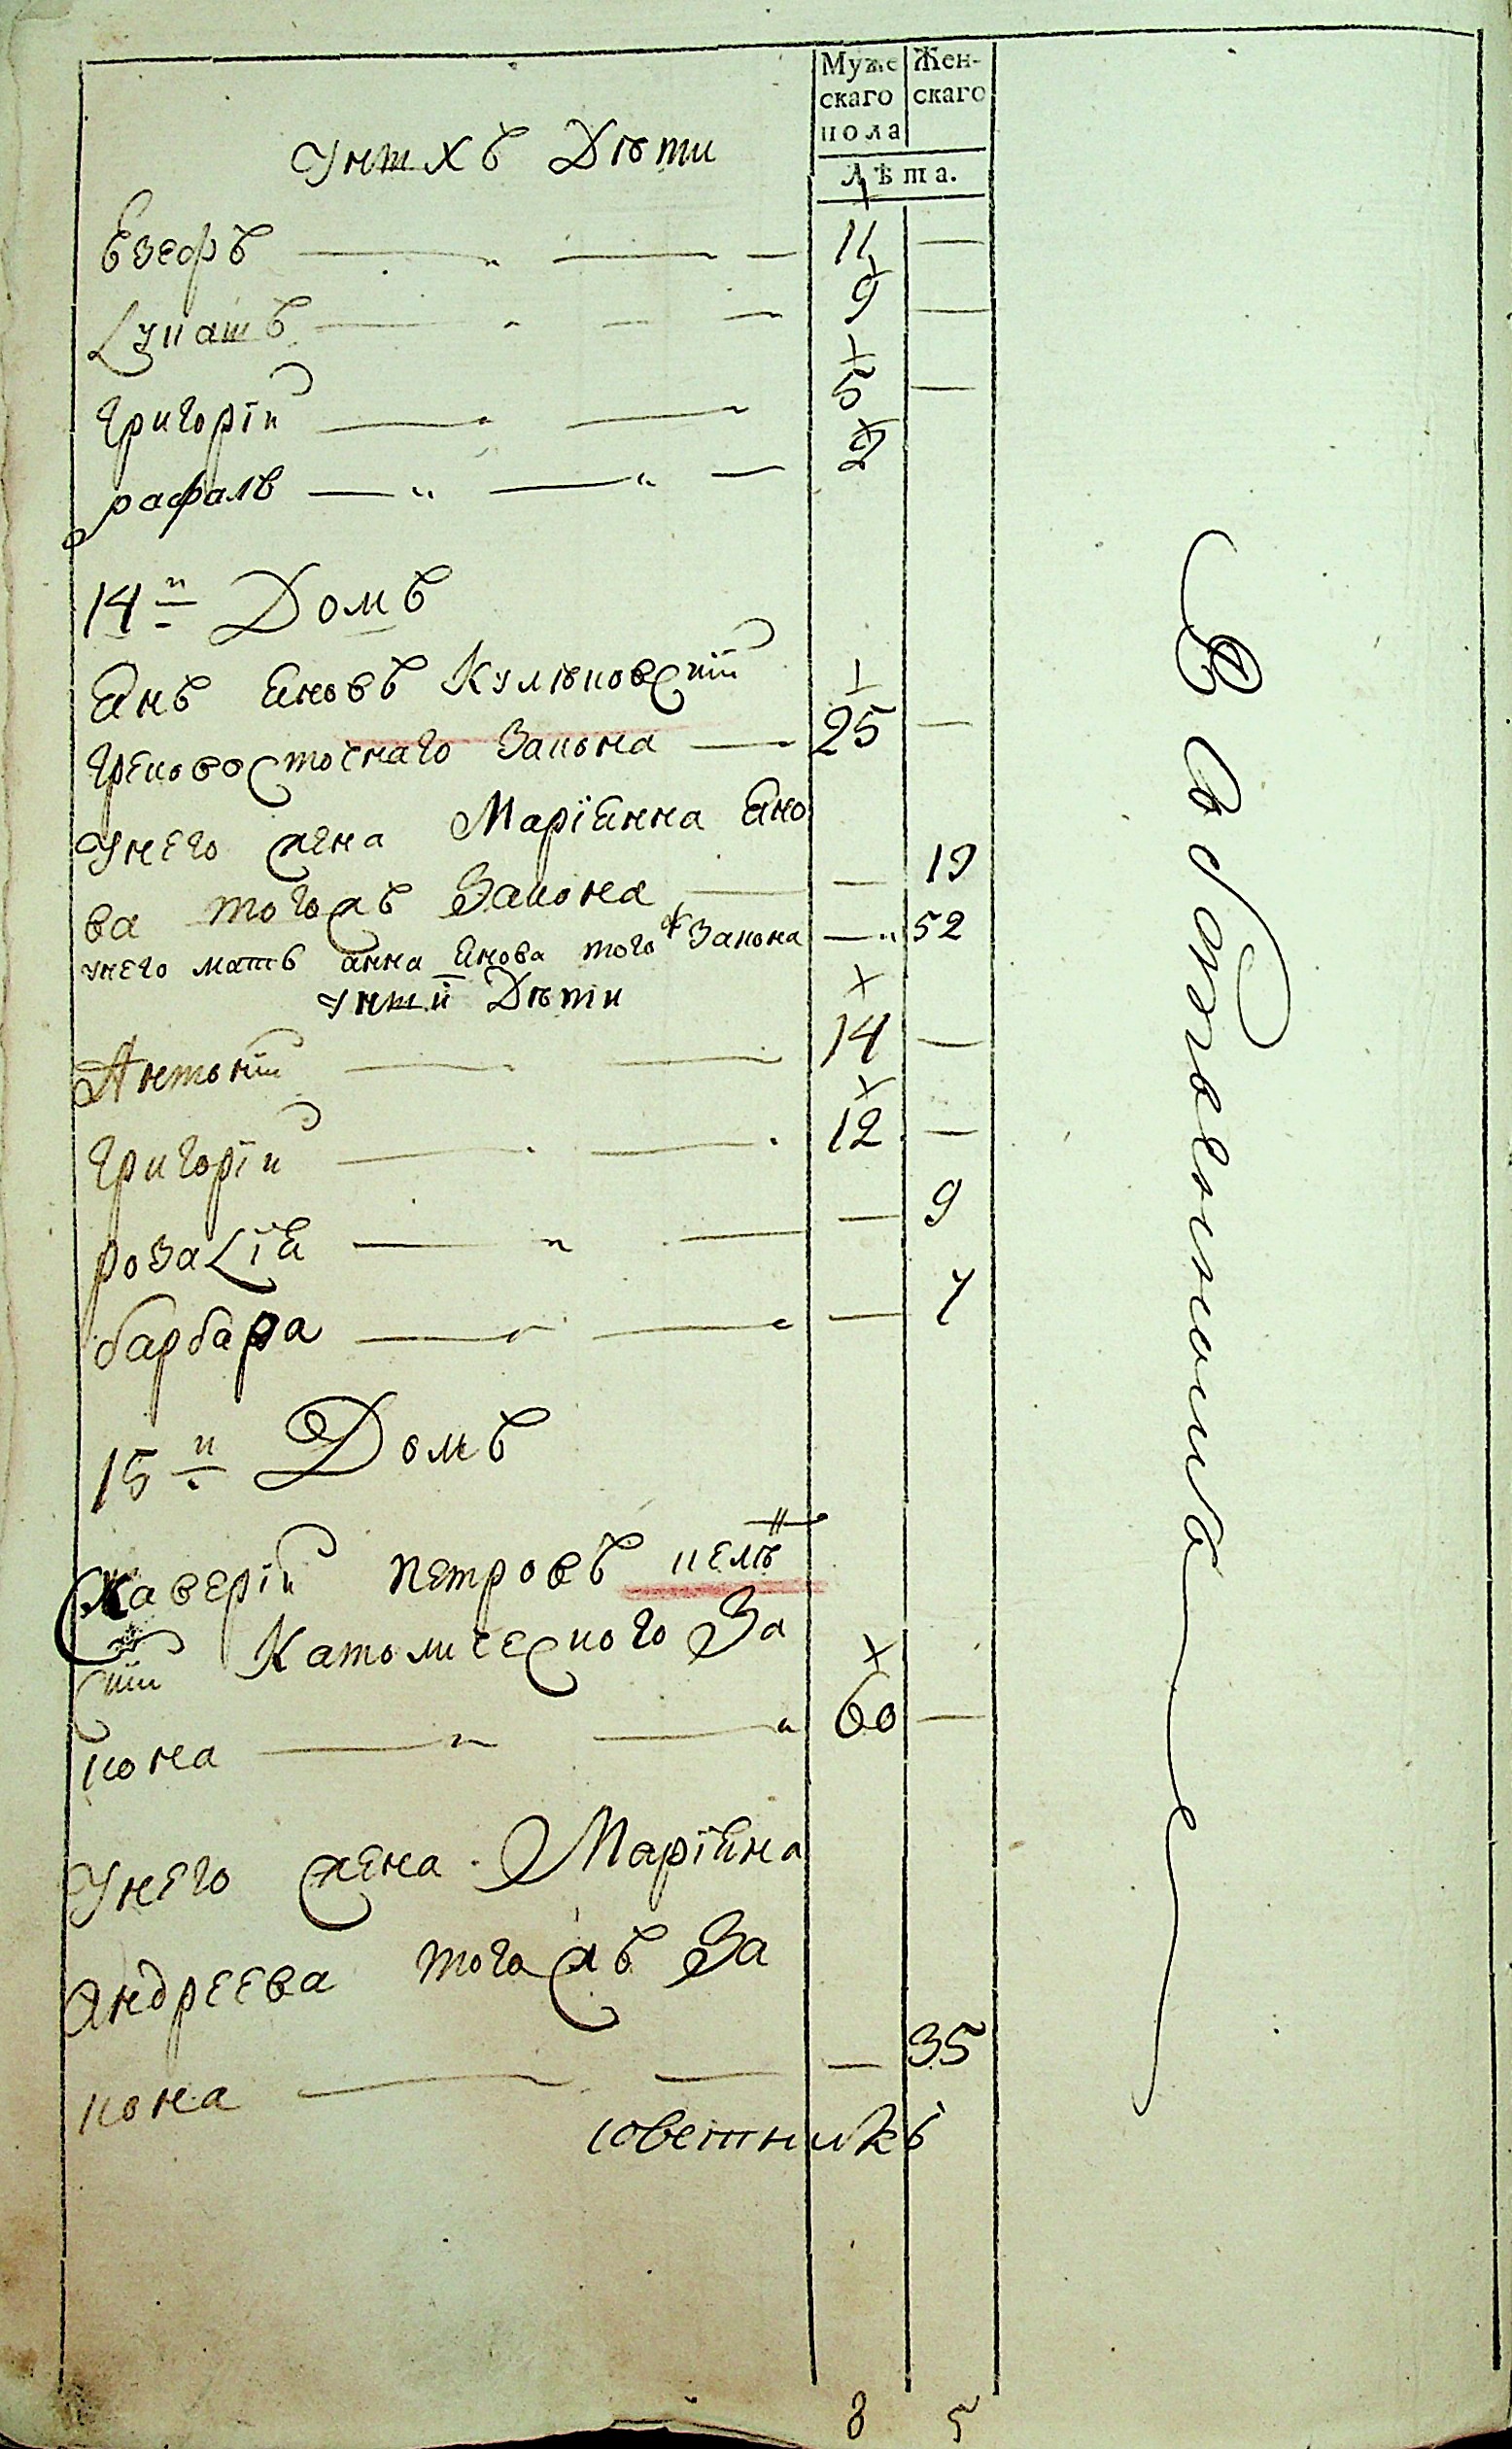 Муже Жен-
скаго скаго
пола
Лѣта.
Унихъ Дѣти
Езефъ 11 —
Лукашъ 9 —
Григоріи 5 —
рафалъ 2
14и Домъ
Янъ Яновъ Кулѣковскій
Грековосточнаго Закона 25 —
Унего жена Маріянна Яно
ва тогожъ Закона — 19
унего мать анна Янова тогож Закона — 52
унии Дѣти
Антоній 14 —
Григоріи 12 —
розалія — 9
барбара — 7
15и Домъ
Ксаверіи Петровъ целѣ
скій Католического За
кона 60 —
Унего жена Маріяна
Андреева тогожъ За
кона — 35
советникъ
8 5